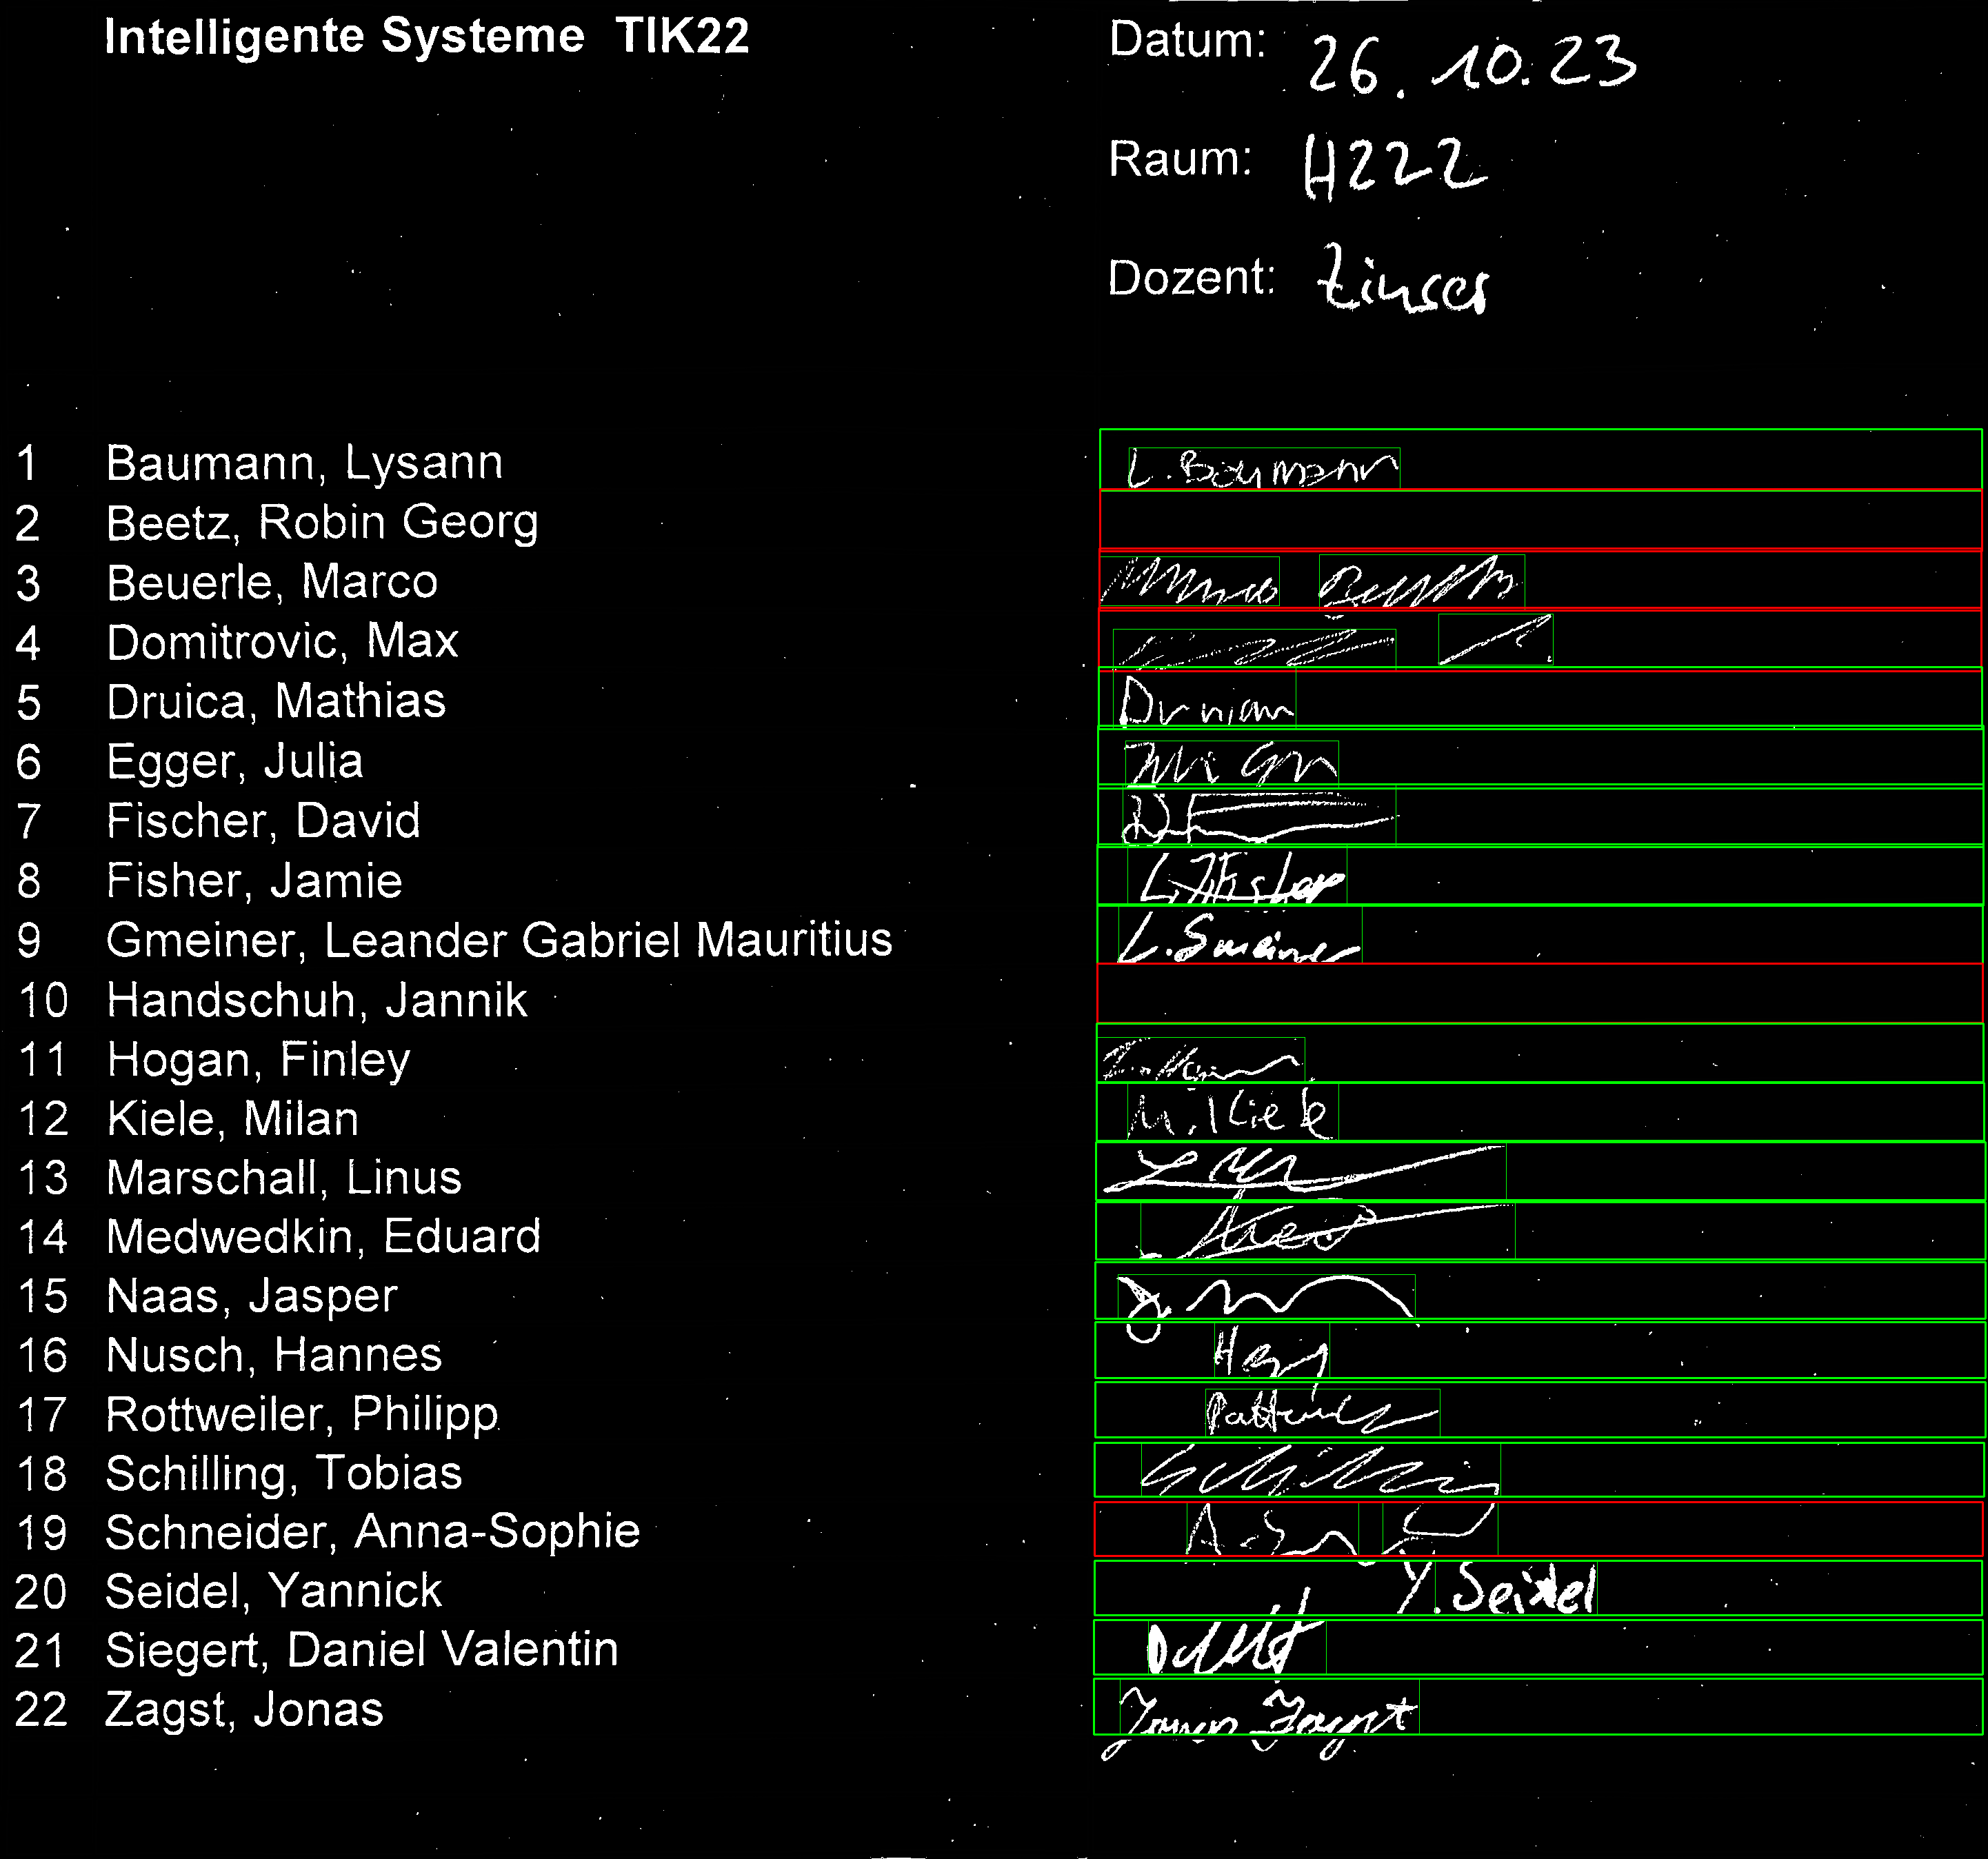 Intelligente Systeme TIK22
Datum: 26.10.23
Raum: H222
Dozent: Zinser
1 Baumann, Lysann L. Baumann
2 Beetz, Robin Georg
3 Beuerle, Marco
4 Domitrovic, Max
5 Druica, Mathias
6 Egger, Julia
7 Fischer, David DF
8 Fisher, Jamie
9 Gmeiner, Leander Gabriel Mauritius L. Gmeiner
10 Handschuh, Jannik
11 Hogan, Finley
12 Kiele, Milan M. Kiele
13 Marschall, Linus
14 Medwedkin, Eduard
15 Naas, Jasper
16 Nusch, Hannes
17 Rottweiler, Philipp
18 Schilling, Tobias
19 Schneider, Anna-Sophie
20 Seidel, Yannick Y. Seidel
21 Siegert, Daniel Valentin
22 Zagst, Jonas Jonas Zagst